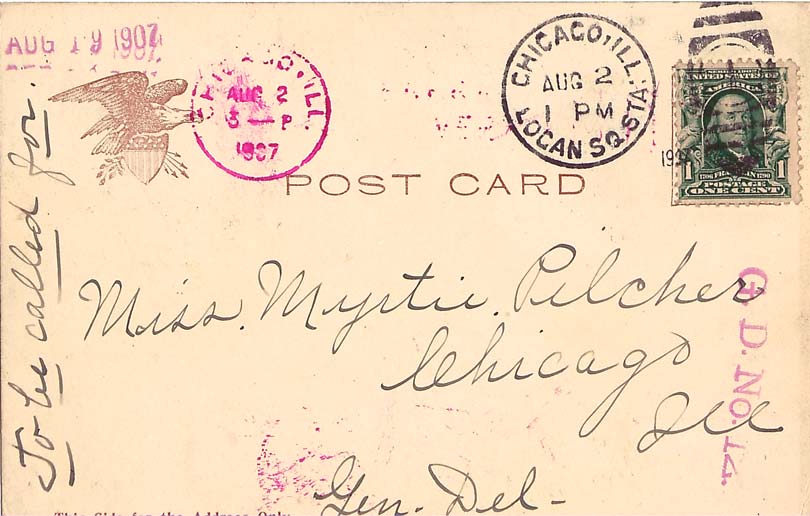 AUG 19 1907
CHICAGO, ILL.
AUG 2
3 — P
1907
CHICAGO, ILL.
AUG 2
1 PM
LOGAN SQ. STA.
UNITED STATES OF
AMERICA
1706 FRANKLIN 1790
1 POSTAGE 1
ONE CENT
POST CARD
To be called for.
Miss. Myrtie. Pilcher
Chicago
Ill
Gen. Del-
G. D. NO. 14.
This Side for the Address Only